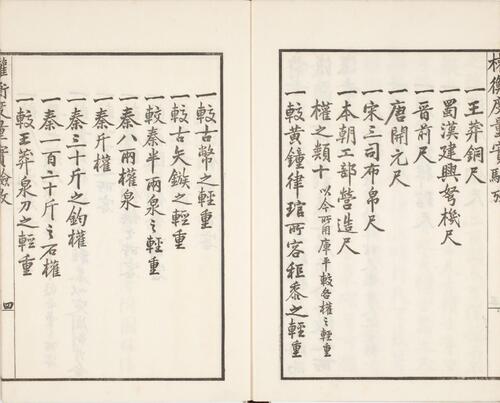 權衡度量實驗攷
一王莽銅尺
一蜀漢建興弩機尺
一晉前尺
一唐開元尺
一宋三司布帛尺
一本朝工部營造尺
權之類十以今所用庫平較各權之輕重
一較黃鐘律琯所容秬黍之輕重
一較古幣之輕重
一較古矢鏃之輕重
一較秦半兩泉之輕重
一秦八兩權泉
一秦斤權
一秦三十斤之鈞權
一秦一百二十斤之石權
一較王莽泉刀之輕重
權衡度量實驗攷
四